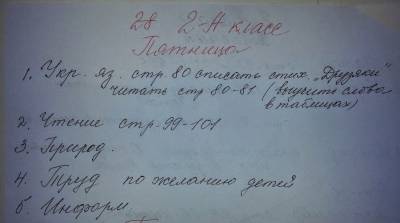 28 2-А классе
Пятница
1. Укр. яз. стр. 80 списать стих. „Друзяки"
читать стр 80-81 (выучить слова
в таблицах)
2. Чтение стр. 99-101
3. Природ.
4. Труд по желанию детей
5. Информ.